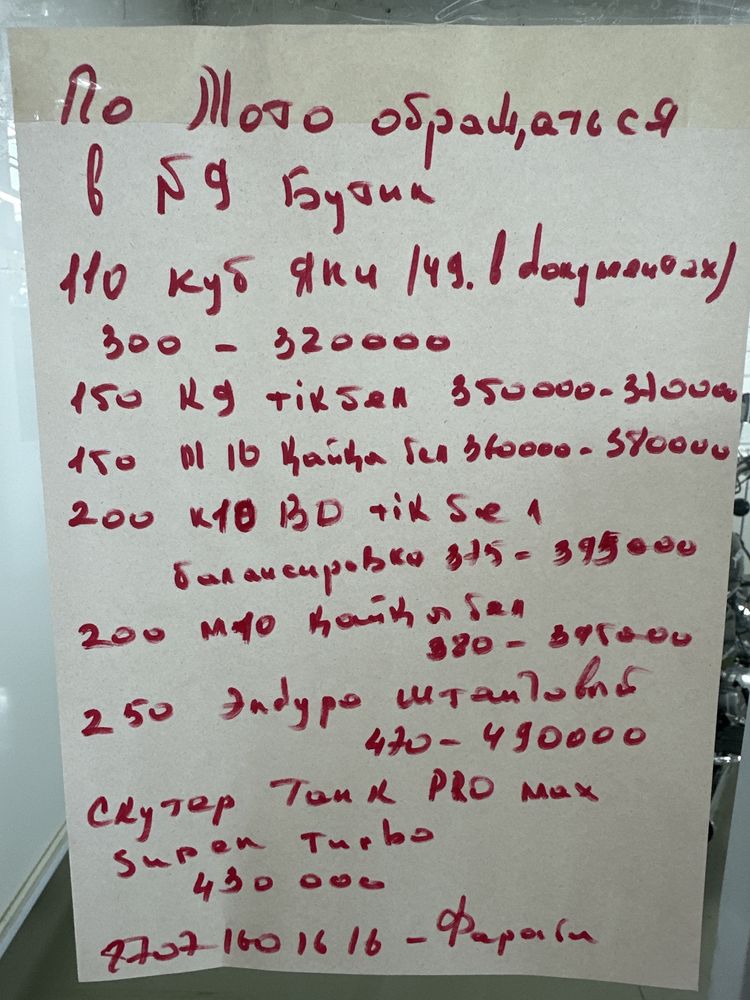 По Мото обращаться
в №9 Бутик
110 куб Яки /49. в документах/
300 - 320000
150 К9 тік бел 350000-370000
150 М16 Қайқа бел 360000-380000
200 К10 ВД тік бел
балансировка 375-395000
200 М10 Қайқа бел
380-395000
250 Эндуро штанговый
470-490000
Скутер Танк PRO max
Super Turbo
430 000
87071601616 -